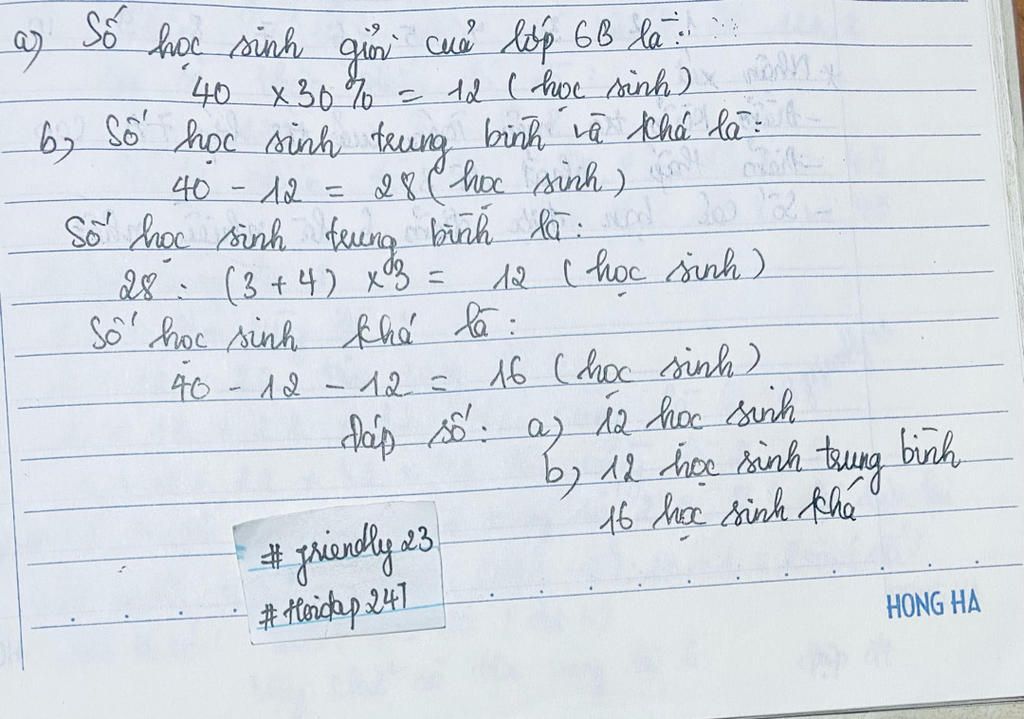 a) Số học sinh giỏi của lớp 6B là:
40 x 30% = 12 (học sinh)
b, Số học sinh trung bình và khá là:
40 - 12 = 28 (học sinh)
Số học sinh trung bình là:
28 : (3 + 4) x 3 = 12 (học sinh)
Số học sinh khá là:
40 - 12 - 12 = 16 (học sinh)
Đáp số: a) 12 học sinh
b, 12 học sinh trung bình
16 học sinh khá
# friendly 23
# Hoidap 247
HONG HA